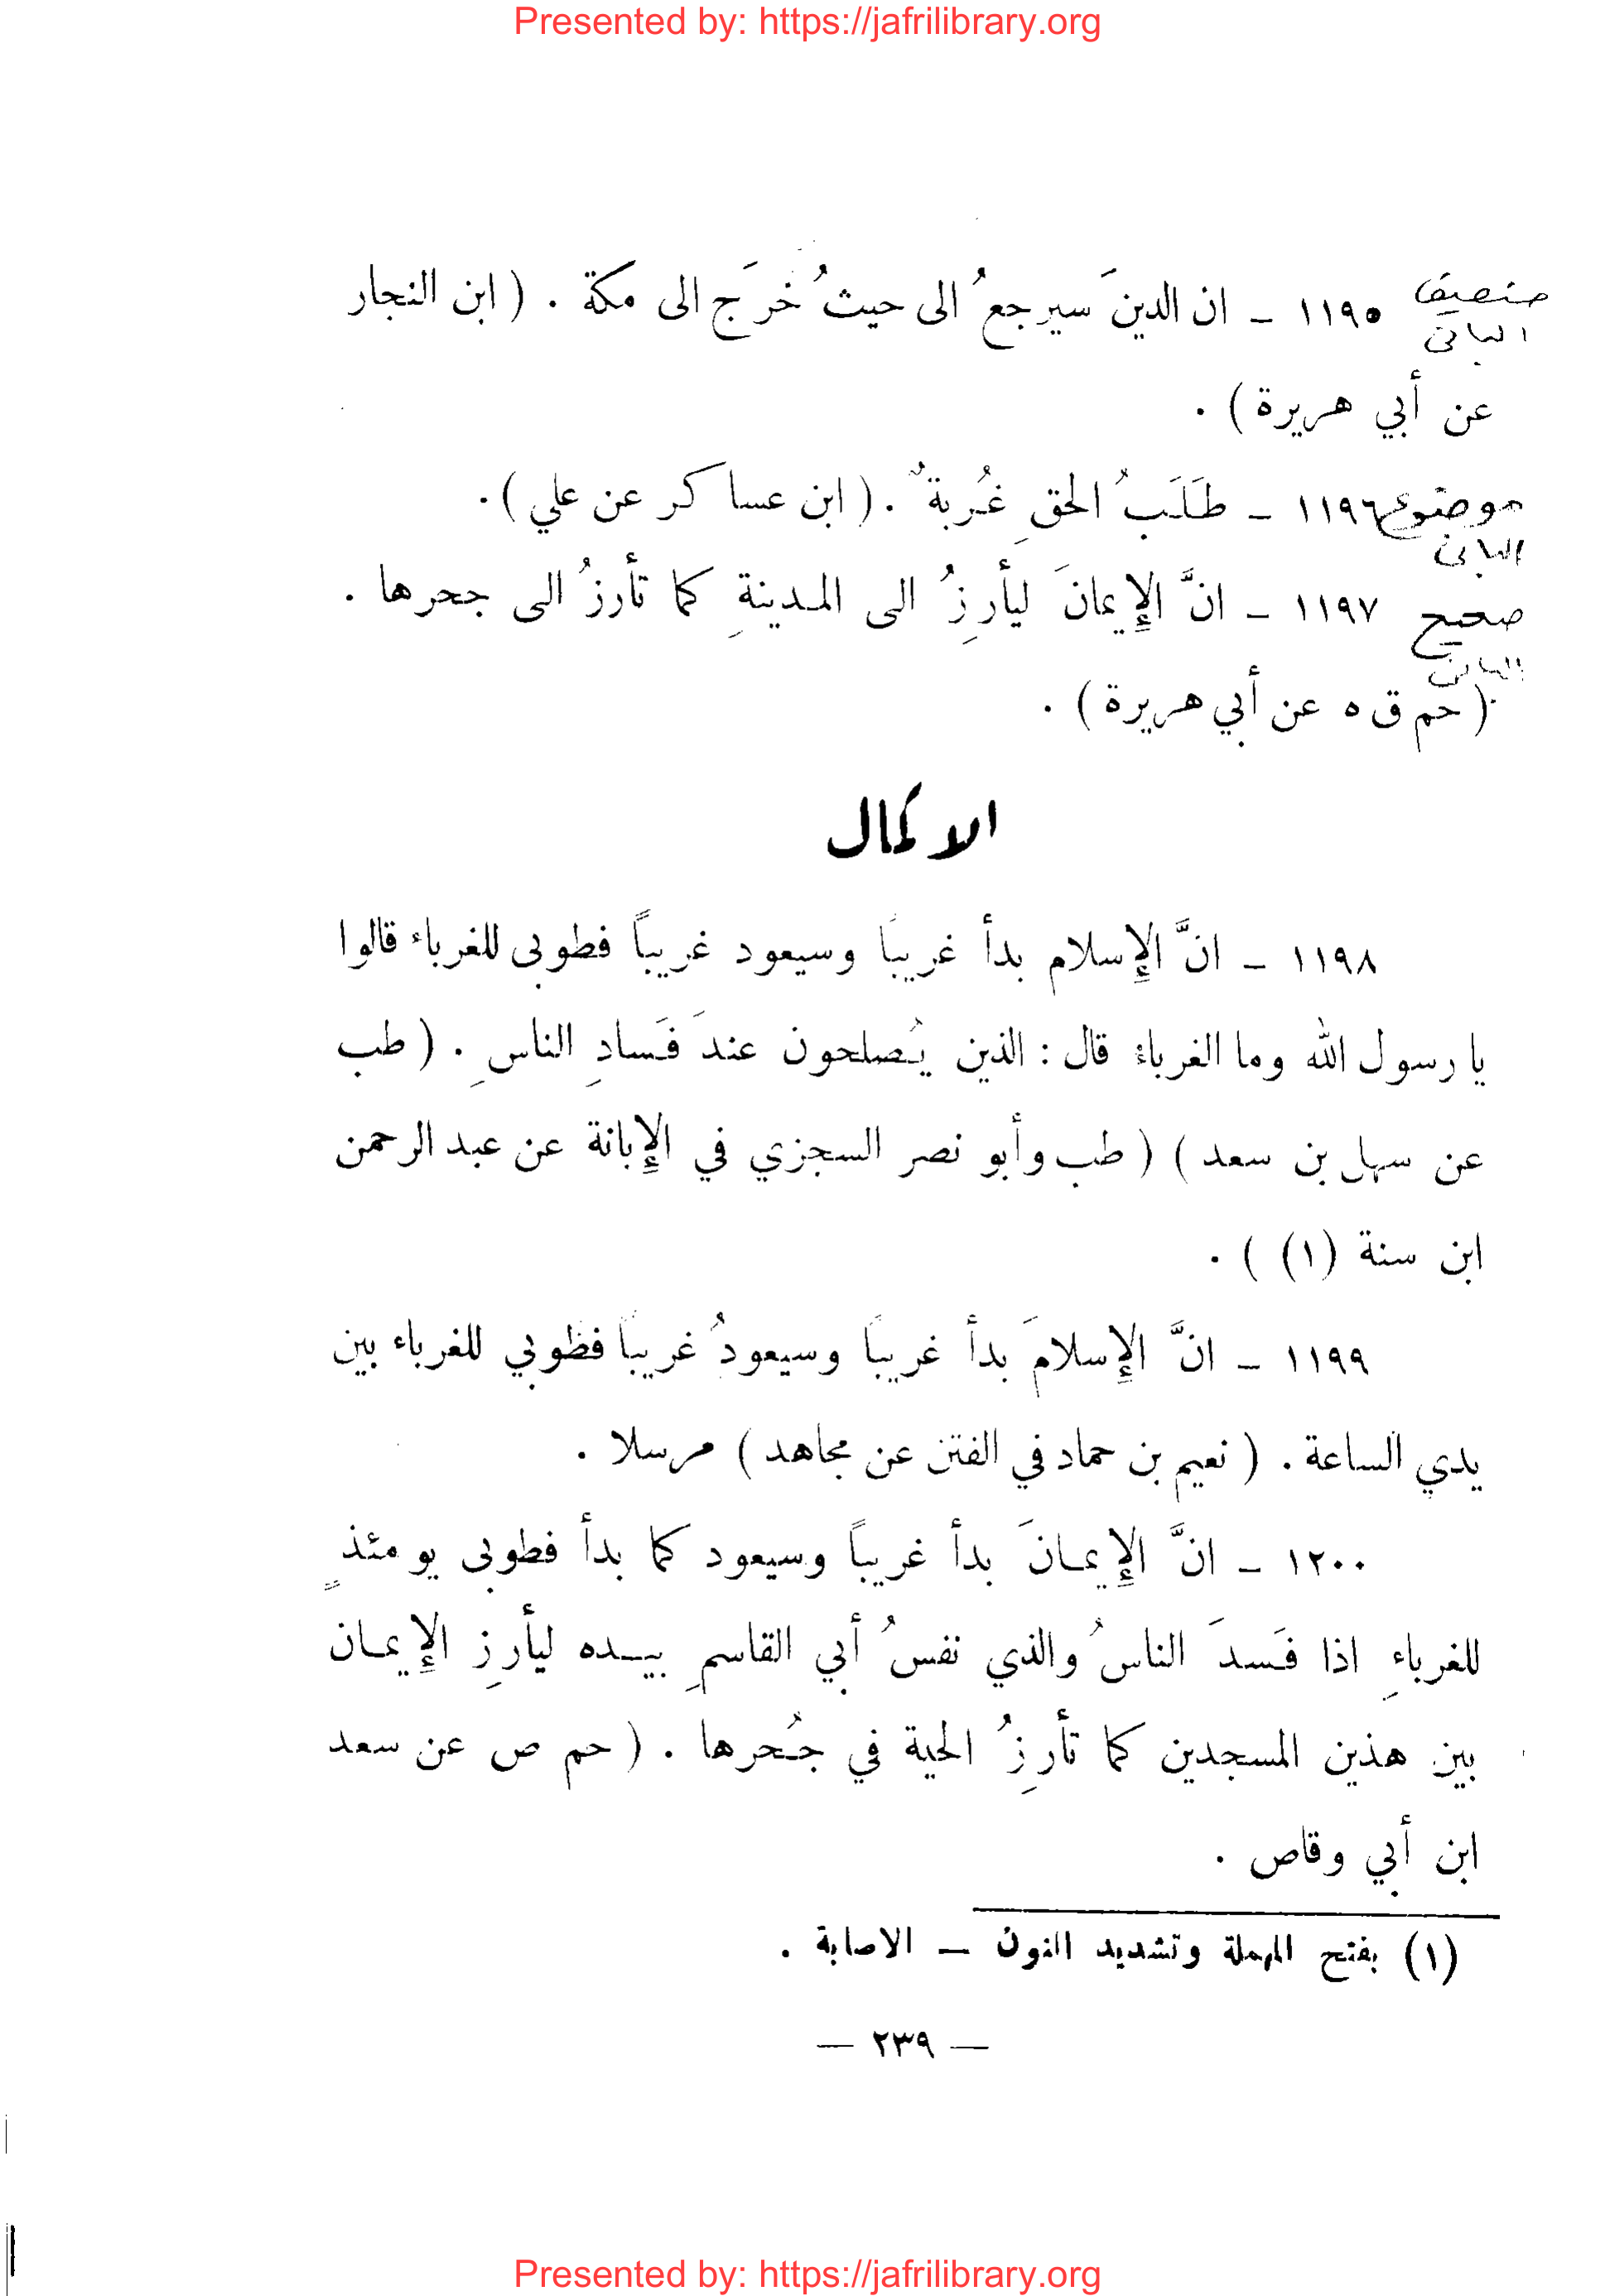 Presented by: https://jafrilibrary.org
ضعيف ١١٩٥ – ان الدينَ سيرجعُ الى حيثُ خرَج الى مكة . ( ابن النجار
البانى
عن أبي هريرة ) .
موضوع ١١٩٦ – طَلَبُ الحقِ غُربةٌ . ( ابن عساكر عن علي ) .
البانى
صحيح ١١٩٧ – انَّ الإِيمانَ ليأرِزُ الى المدينةِ كما تأرزُ الى جحرها .
البانى
( حم ق ه عن أبي هريرة ) .
الاكمال
١١٩٨ – انَّ الإِسلام بدأ غريباً وسيعود غريباً فطوبى للغرباء قالوا
يا رسول الله وما الغرباء قال : الذين يُصلحون عندَ فَسادِ الناسِ . ( طب
عن سهل بن سعد ) ( طب وأبو نصر السجزي في الإِبانة عن عبد الرحمن
ابن سنة (١) ) .
١١٩٩ – انَّ الإِسلامَ بدأ غريباً وسيعودُ غريباً فطوبي للغرباء بين
يدي الساعة . ( نعيم بن حماد في الفتن عن مجاهد ) مرسلا .
١٢٠٠ – انَّ الإِيمانَ بدأ غريباً وسيعود كما بدأ فطوبى يومئذٍ
للغرباءِ اذا فَسدَ الناسُ والذي نفسُ أبي القاسمِ بيده ليأرِز الإِيمان
بين هذين المسجدين كما تأرِزُ الحية في جُحرها . ( حم ص عن سعد
ابن أبي وقاص .
(١) بفتح المهملة وتشديد النون – الاصابة .
— ٢٣٩ —
Presented by: https://jafrilibrary.org